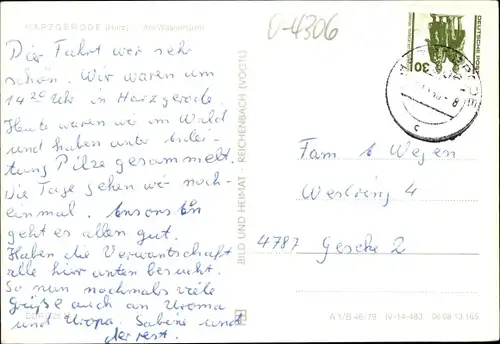 HARZGERODE (Harz)   Am Wasserturm
D-4306
Die Fahrt war sehr
schön. Wir waren um
14 20 Uhr in Harzgerode.
Heute waren wir im Wald
und haben unter Anlei-
tung Pilze gesammelt.
Die Tage gehen wir noch-
einmal. Ansonsten
geht es allen gut.
Haben die Verwantschaft
alle hier unten besucht.
So nun nochmals viele
Grüße auch an Uroma
und Uropa. Sabine und
der rest.
BILD UND HEIMAT · REICHENBACH (VOGTL)
DEUTSCHE POST
30
Fam
Westring 4
4787 Geseke 2
A 1/B 46/79   IV-14-483   06 08 13 165